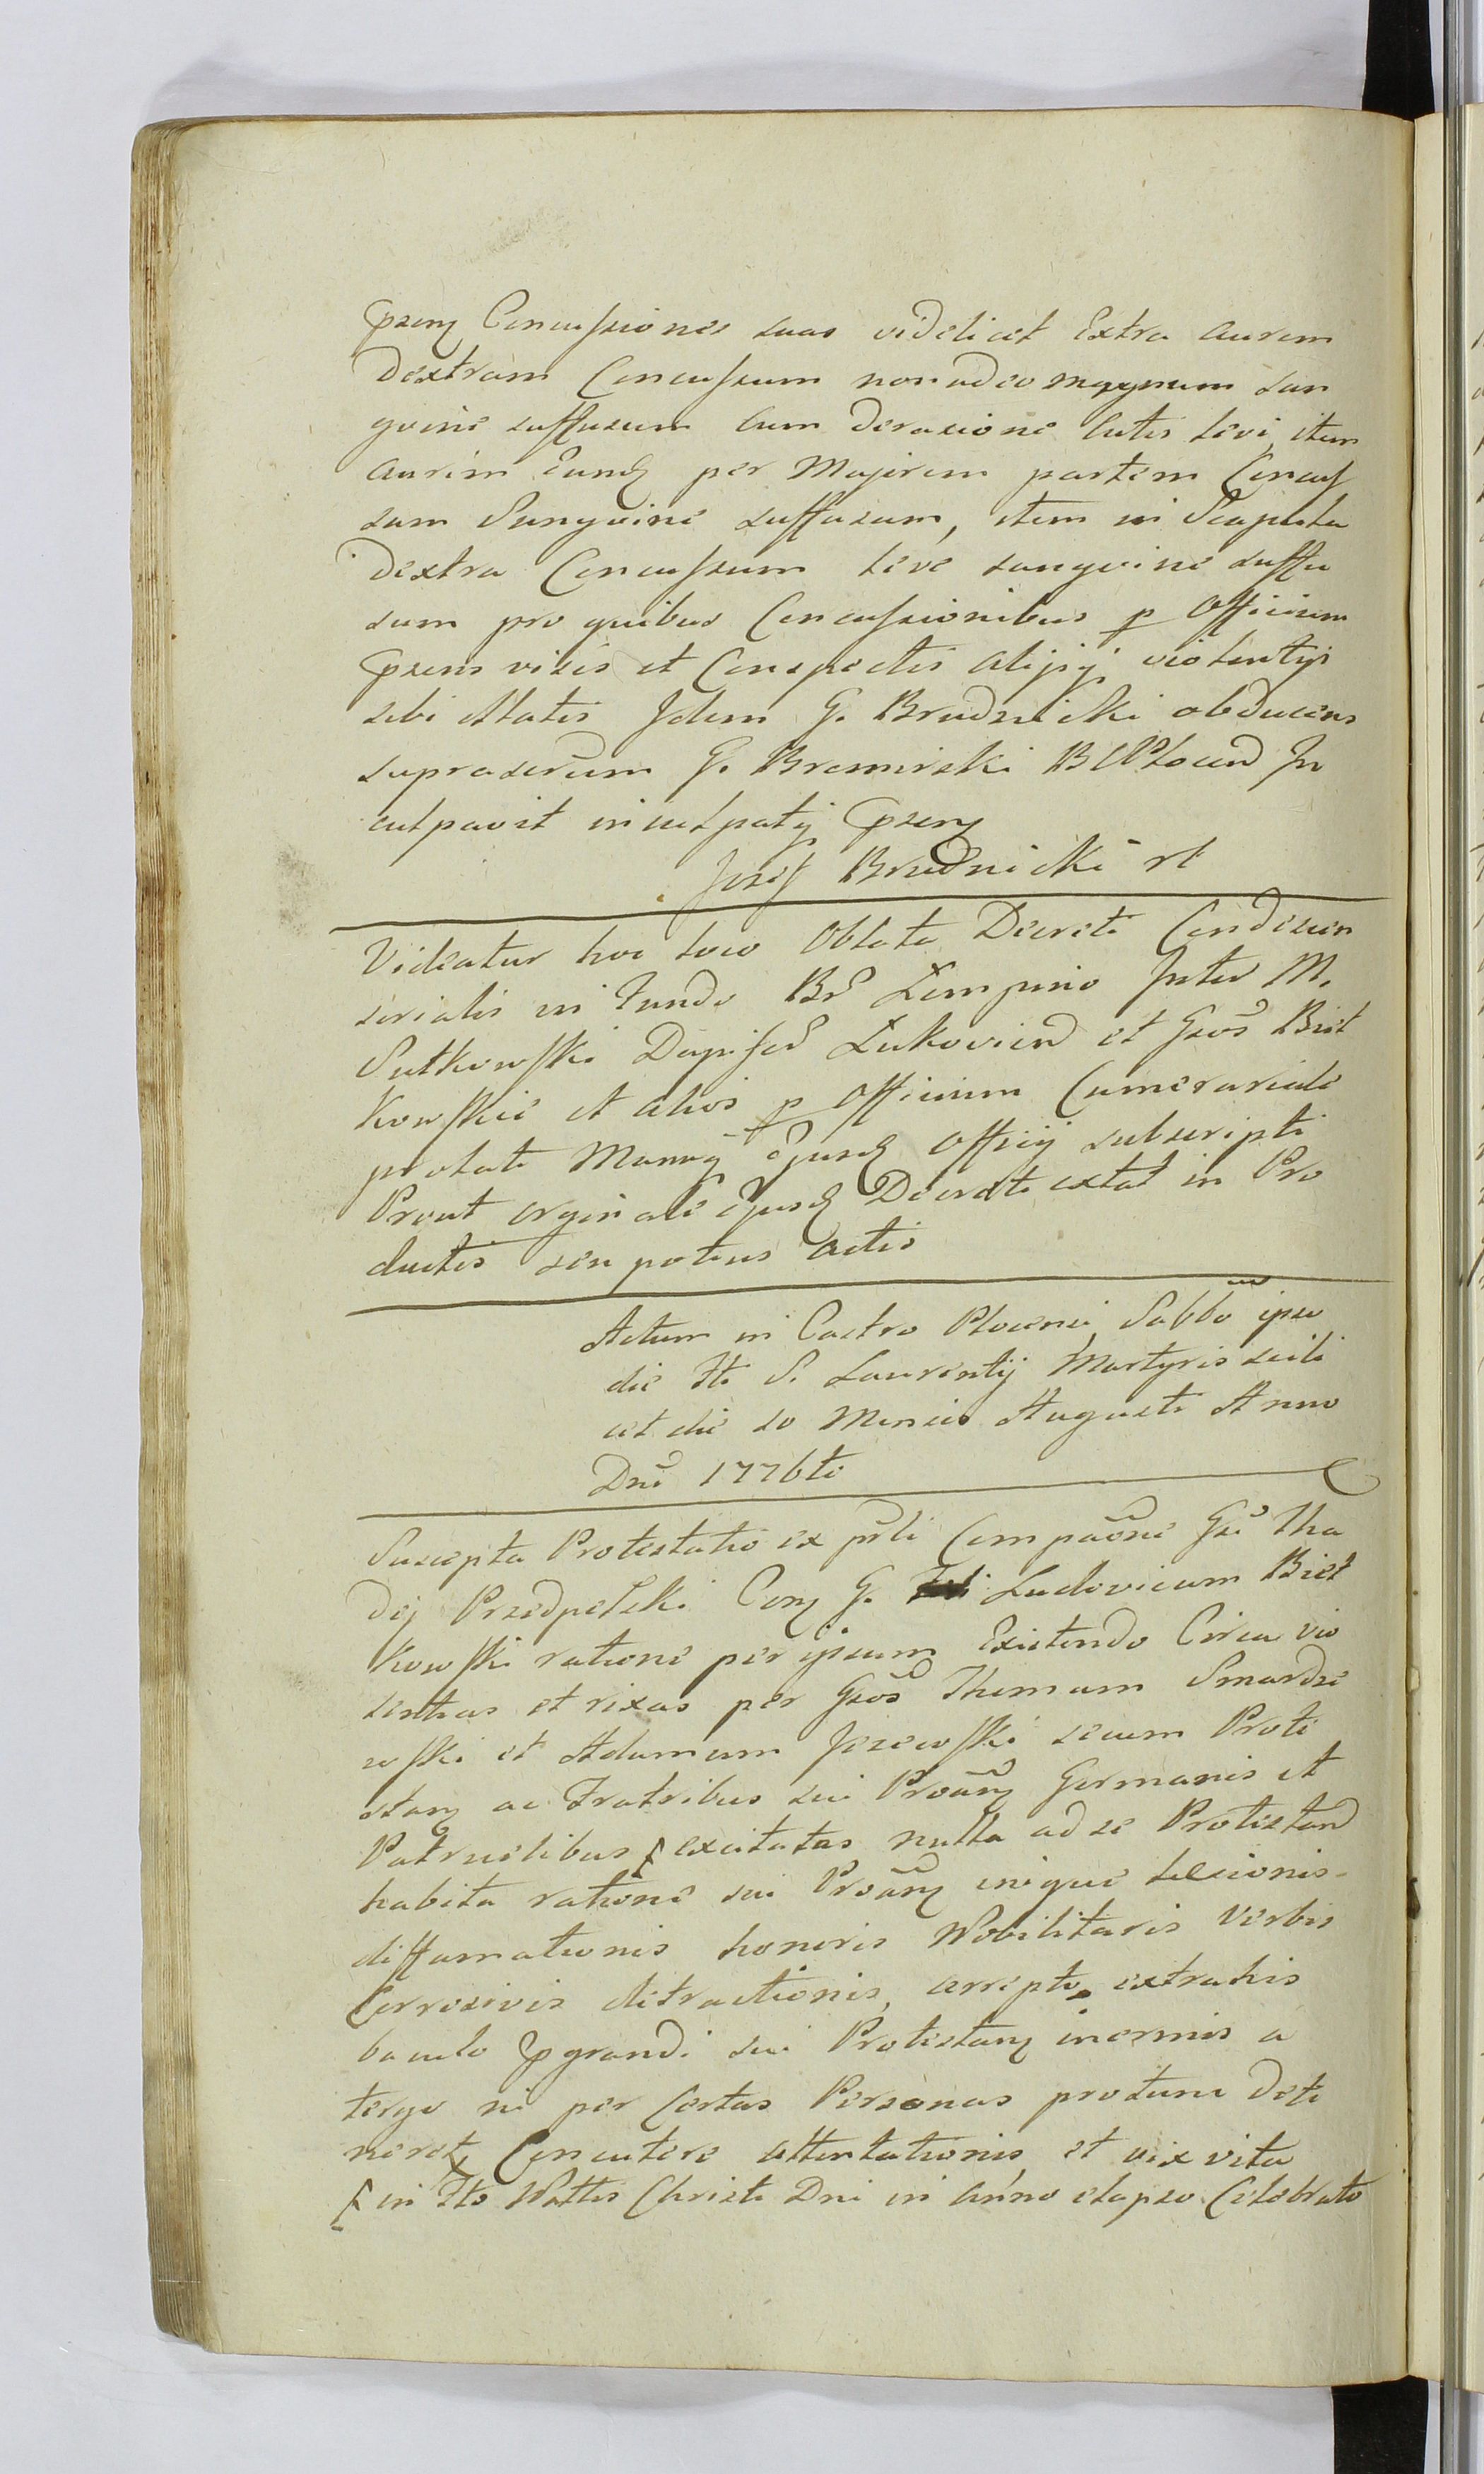 pzeny Concussiones suas videlicet Extra aurem
Dextram Concussum non adeo magnum san
gvine suffusum cum Derasione Cutis levi, item
aurim Eand per Majorem partem Concus
sam Sangvine suffusam, item in Scapula
Dextra Concussum leve sangvine suffu
sum pro quibus Concussionibus p Officium
pzens visis et Conspectis alijsq violentijs
sibi illatis Idem G. Brudnicki obducens
suprascrum G. Bromirski B Plocen In
culpavit inculpatq pzeny
Jozef Brudnicki rt
Videatur hoc loco Oblata Decreti Condescen
sorialis in Fundo Br Lempino Inter M.
Sutkowski Dapifer Lukovien et Gsos Biel
kowskie et alios p Officium Camerariale
prolati Manuq Ejusd Officij subscripti
Prout originale Ejusd Decreti extat in Pro
ductis seu potius actis
Actum in Castro Plocensi, Sabbo ipso
die Fti S. Laurentij Martyris scili
cet die 10 Mensis Augusti Anno
Dni 1776to
Suscepta Protestatio ex prli Compaone Gsi Tha
dej Przedpelski Con G. Ludovicum Biel
kowski ratione per ipsum Existendo Circa vio
lentias et rixas per Gsos Thomam Smardze
wski et Adamum Jezewski secum Prote
stan ac Fratribus sui Proan Germanis et
Patruelibus ⌈ excitatas nulla ad se Protestand
habita ratione sui Proan inique lesionis
diffamationis honoris Nobilitaris Verbis
Corrosivis detractionis, arrepto extrahis
baculo pgrandi sui Protestan inermis a
tergo ni per Certas Personas protunc deti
neret, Concutere attentationis, et vix vita
⌈ in Fto Nattis Christi Dni in anno elapso Celebrato